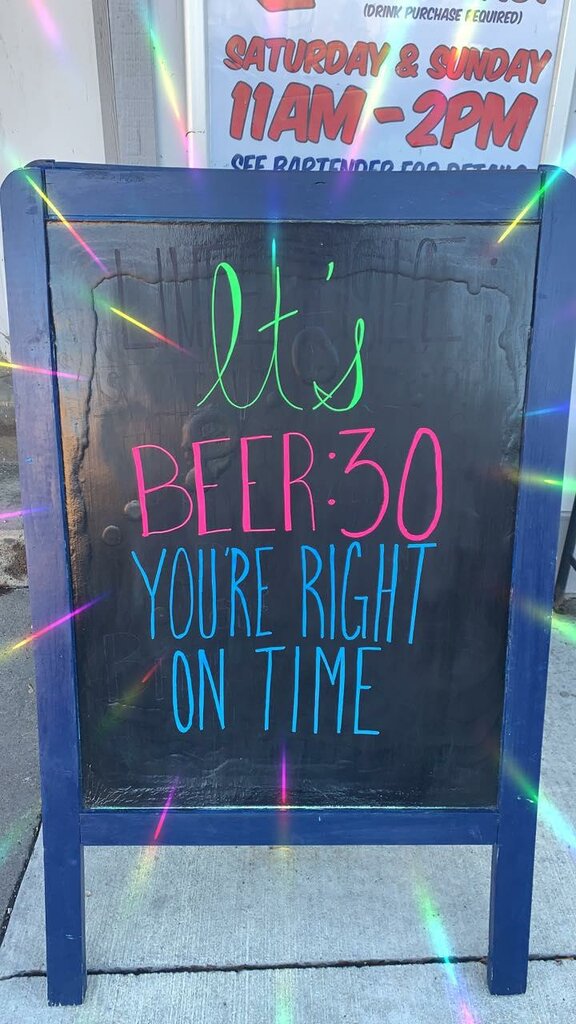 (DRINK PURCHASE REQUIRED)
SATURDAY & SUNDAY
11AM - 2PM
SEE BARTENDER FOR DETAILS
It's
BEER:30
YOU'RE RIGHT
ON TIME